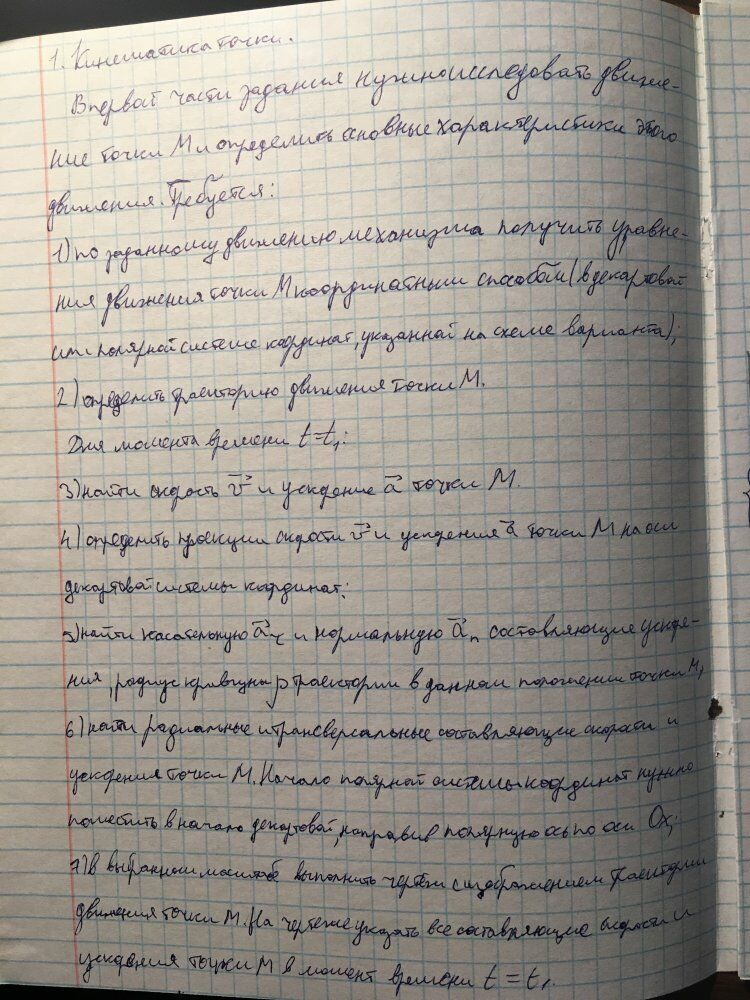 1. Кинематика точки.
В первой части задания нужно исследовать движе-
ние точки M и определить основные характеристики этого
движения. Требуется:
1) по заданному движению механизма получить уравне-
ния движения точки M координатным способом (в декартовой
или полярной системе координат, указанной на схеме варианта);
2) определить траекторию движения точки M.
Для момента времени t=t₁:
3) найти скорость v⃗ и ускорение a⃗ точки M.
4) определить проекции скорости v⃗ и ускорения a⃗ точки M на оси
декартовой системы координат;
5) найти касательную a⃗τ и нормальную a⃗n составляющие ускоре-
ния, радиус кривизны ρ траектории в данном положении точки M;
6) найти радиальные и трансверсальные составляющие скорости и
ускорения точки M. Начало полярной системы координат нужно
поместить в начало декартовой, направив полярную ось по оси Ox;
7) В выбранном масштабе выполнить чертеж с изображением траектории
движения точки M. На чертеже указать все составляющие скорости и
ускорения точки M в момент времени t=t₁.